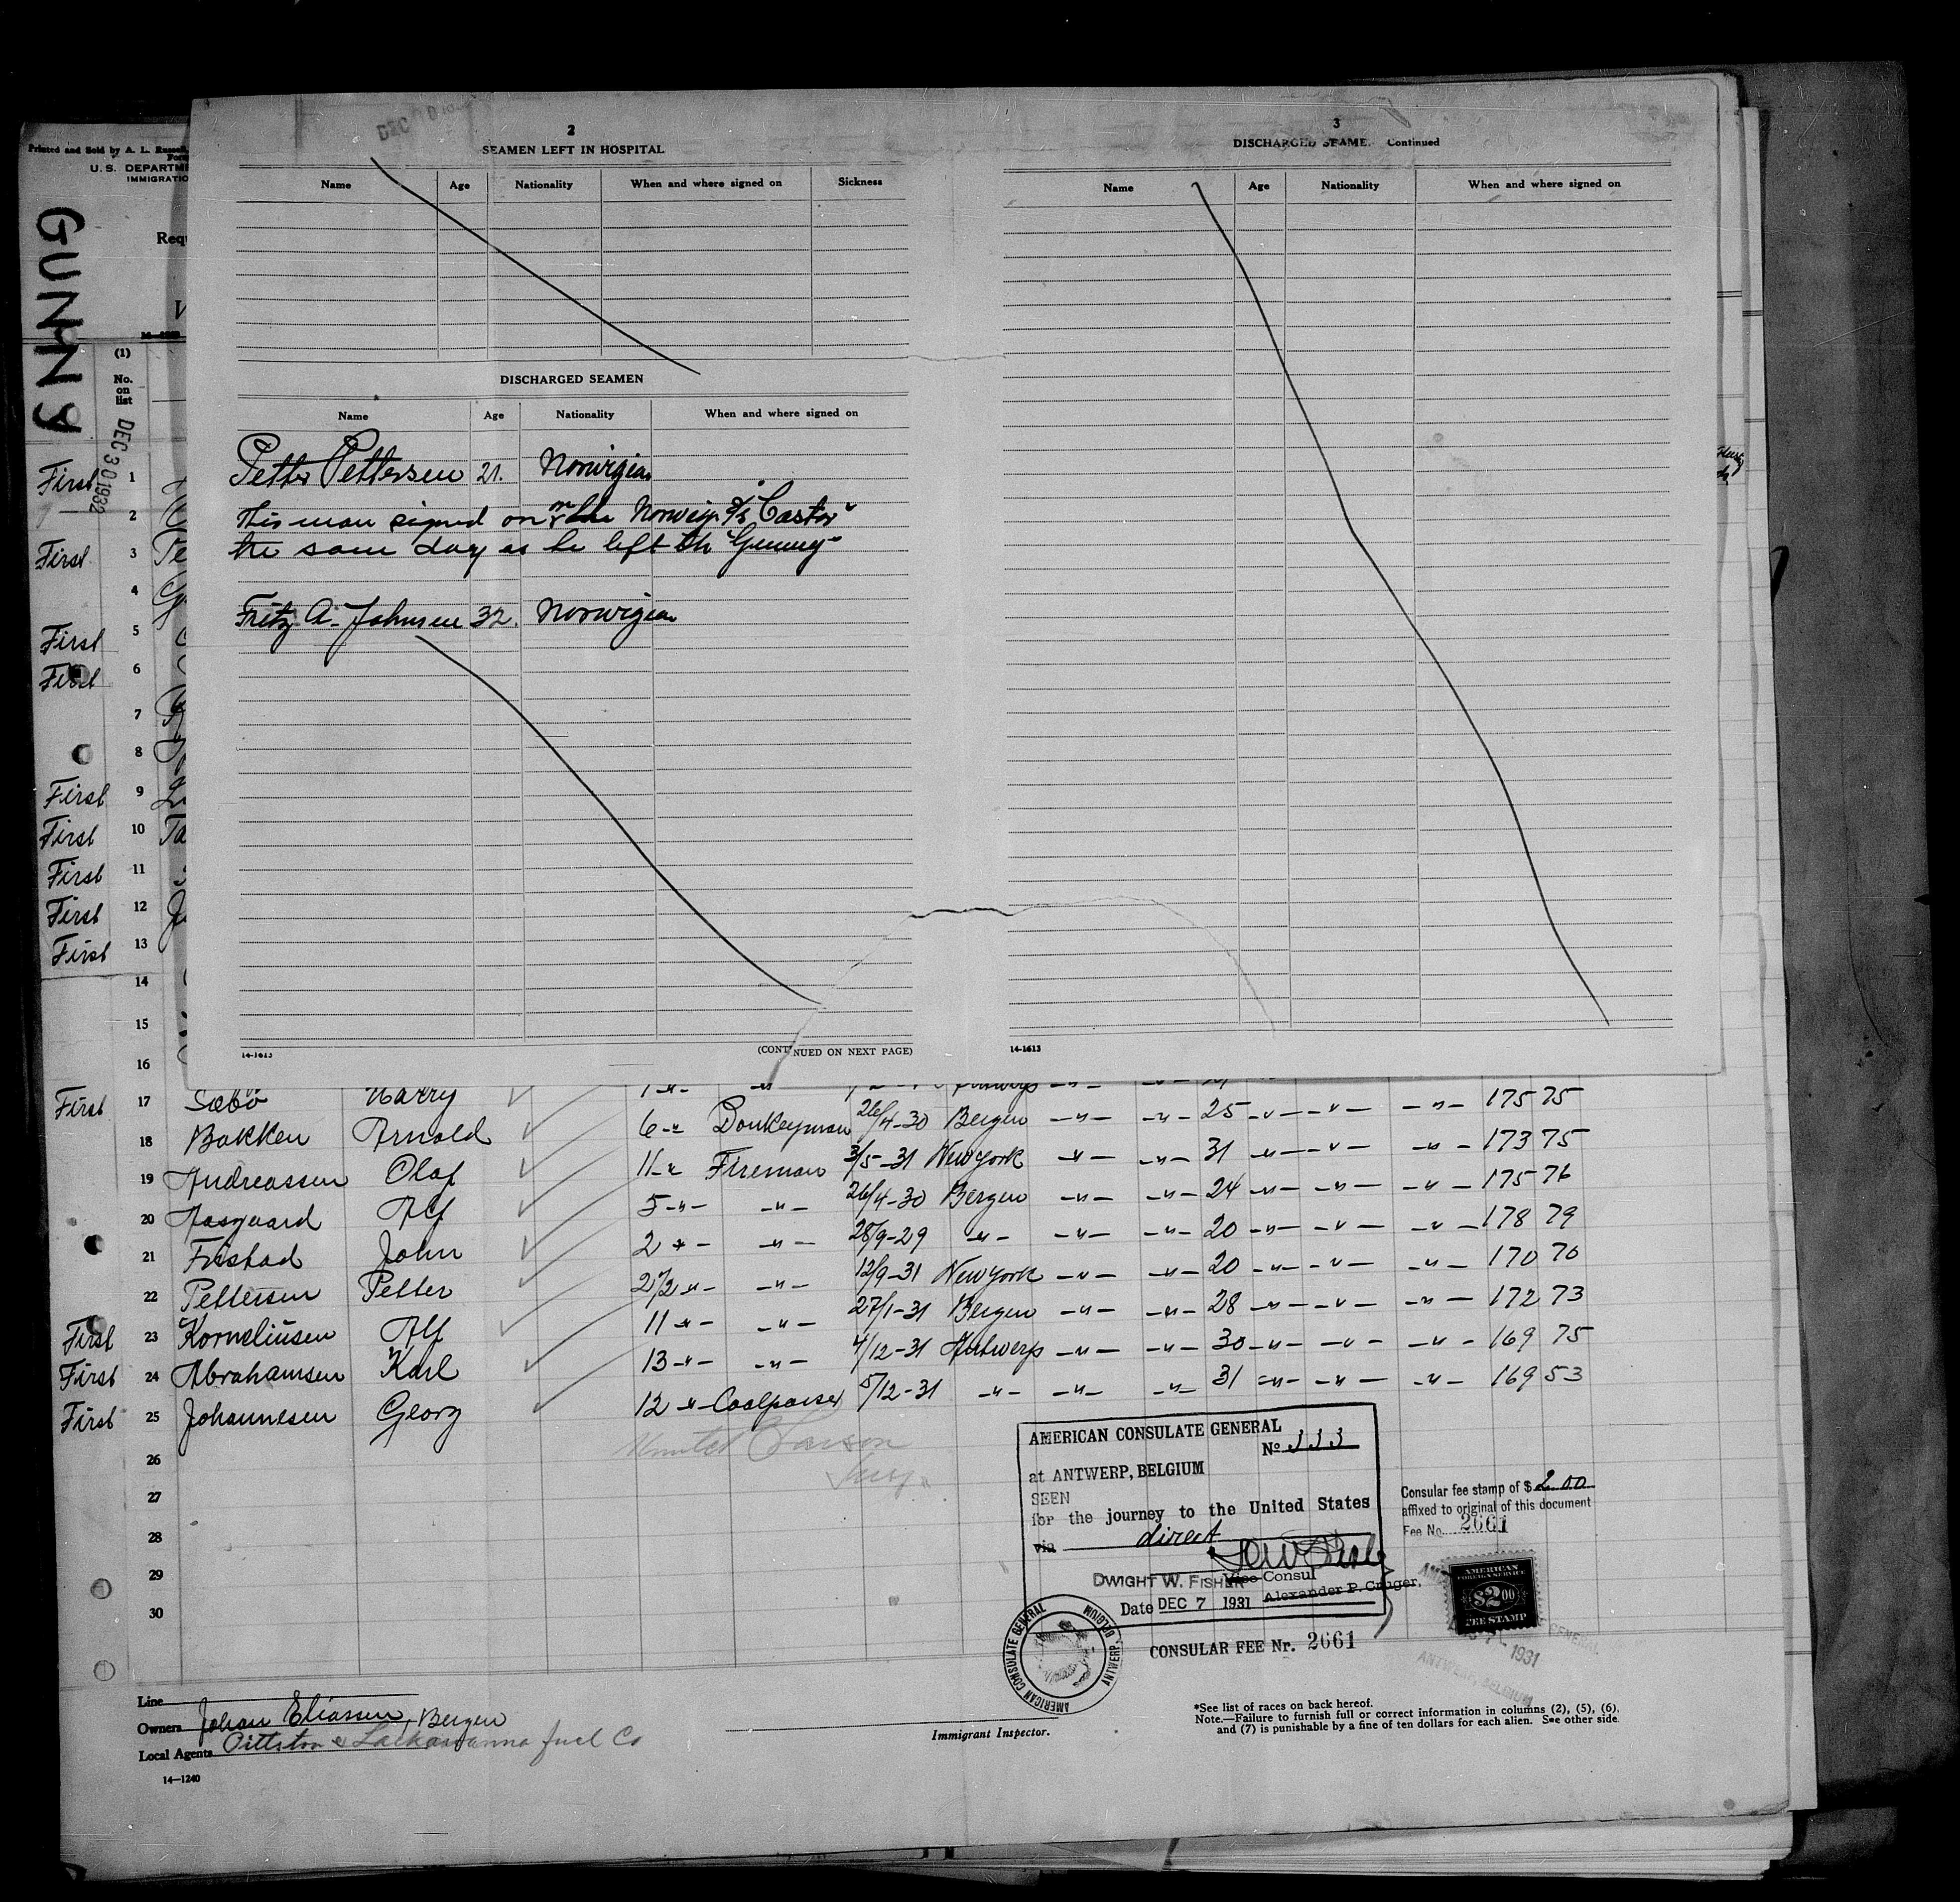 DEC
2
SEAMEN LEFT IN HOSPITAL
Name Age Nationality When and where signed on Sickness
DISCHARGED SEAMEN
Name Age Nationality When and where signed on
Petter Pettersen 21. Norwigian
This man signed on the Norweg. s/s "Castor"
the same day as he left the "Gunny"
Fritz A. Johnsen 32. Norwigian
14-1613
(CONTINUED ON NEXT PAGE)
3
DISCHARGED SEAME. Continued
Name Age Nationality When and where signed on
14-1613
Printed and Sold by A. L. Russell,
Form
U. S. DEPARTME
IMMIGRATIO
GUNNY
Requ
(1)
No.
on
list
DEC 30 1932
First 1
2
First 3 Te
4
First 5
First 6
7
8
First 9
First 10 Ta
First 11
First 12
First 13
14
15
16
First 17 Sæbö Harry 1 -"- -"- 175 75
18 Bakken Arnold 6 -"- Donkeyman 26/4-30 Bergen -"- -"- 25 -"- -"- -"- 173 75
19 Andreassen Olaf 11 -"- Fireman 3/5-31 New York -"- -"- 31 -"- -"- -"- 175 76
20 Aasgaard Alf 5 -"- -"- 26/4-30 Bergen -"- -"- 24 -"- -"- -"- 178 79
21 Fristad John 2 -"- -"- 28/9-29 -"- -"- -"- 20 -"- -"- -"- 170 70
22 Pettersen Petter 2 1/2 -"- -"- 12/9-31 New York -"- -"- 20 -"- -"- -"- 172 73
First 23 Korneliusen Alf 11 -"- -"- 27/1-31 Bergen -"- -"- 28 -"- -"- -"- 169 75
First 24 Abrahamsen Karl 13 -"- -"- 4/12-31 Antwerp -"- -"- 30 -"- -"- -"- 169 53
First 25 Johannesen Georg 12 -"- Coalpasser 5/12-31 -"- -"- -"- 31 -"- -"- -"-
26
27
28
29
30
AMERICAN CONSULATE GENERAL
No 333
at ANTWERP, BELGIUM
SEEN
for the journey to the United States
via direct
DWIGHT W. FISHER
Vice Consul
Alexander P. Cruger,
Date DEC 7 1931
CONSULAR FEE Nr. 2661
AMERICAN CONSULATE GENERAL ANTWERP, BELGIUM
Consular fee stamp of $ 2.00
affixed to original of this document
Fee No. 2661
AMERICAN
FOREIGN SERVICE
$2.00
FEE STAMP
1931
GENERAL
ANTWERP, BELGIUM
Line
Owners Johan Eliassen, Bergen
Local Agents Pittston & Lackawanna fuel Co
14-1240
Immigrant Inspector.
*See list of races on back hereof.
Note.—Failure to furnish full or correct information in columns (2), (5), (6),
and (7) is punishable by a fine of ten dollars for each alien. See other side.